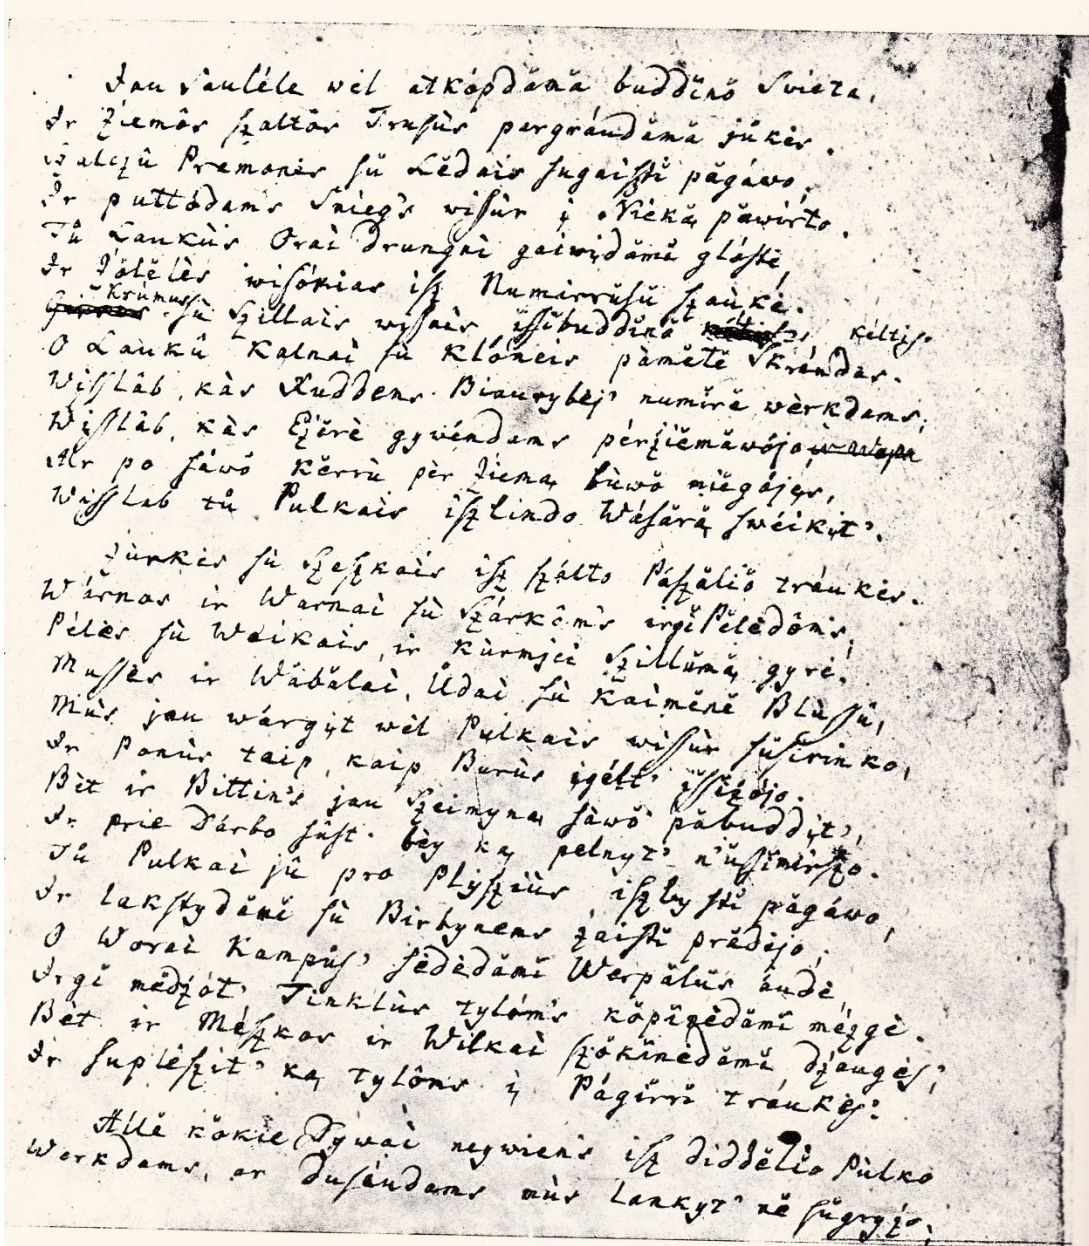 Jau Sauléle wėl atkópdama buddĭno Swieta,
Ir Źiemôs ſzaltôs Truſùs pargráudama jůkės.
Szalcźû Pramonės ſu Lėdais ſugaiſzti págáwo,
Ir puttódams Snieg's wiſſùr į Niėką páwirto.
Tů Laukùs Orai drungni gaiwįdami gláſtė,
Ir Źólėlės wiſókias iſz Numirruſû ſzaukė.
Krúmus ſù Szillais wiſſais iſſibuddĭno kéltis.
O Laukû Kalnai ſù Klóneis pàmėtė Skrándas.
Wiſſláb, kàs Ruddens Biaurybėj' numirė wėrkdams,
Wiſſláb, kàs Eźerė gywéndams pėrźiėmawójo
Ar po ſáwo Kėrru pėr Źiemą buwo miėgójęs,
Wiſſláb tů Pulkais iſzlindo Wáſárą ſwėikįt'.
Źiurkės ſù Szeſzkais iſz ſzálto Páſzálio tráukės.
Wárnos ir Warnai ſù Szárkôm's irgi Pėlėdôms,
Pélės ſù Waikais, ir kùrmjei Szillumą gyrė.
Muſſės ir Wábálai, Ůdai ſù Kaimėnė Bluſſû,
Mùs jau wárgįt wėl Pulkais wiſſùr ſuſirinko,
Ir Ponùs taip, kaip Burùs įgélt' iſſiźójo.
Bėt ir Bittin's jau Szeimyną ſáwo pabuddįt',
Ir prie Dárbo ſiųſt' bėy ką pelnyt' n'uſſimirſzo.
Tů Pulkai jû pro Plyſziùs iſzlyſti págáwo,
Ir lakſtydámi ſù Birbynems źaiſti prádėjo,
O Worai Kampůſ' ſėdėdámi Werpálus áudė,
Irgi mėdźót' Tinklùs tylôm's kópinėdámi mézgė.
Bėt ir Méſzkos ir Wilkai ſzókinėdámi dźaugės,
Ir ſuplėſzit' ką tylôms į Págirri tráukės.
Allė kokie Dywai neywien's iſz diddėlio Pùlko
Werkdams, ar Duſáudams mùs lankyt' ne ſugryźo,